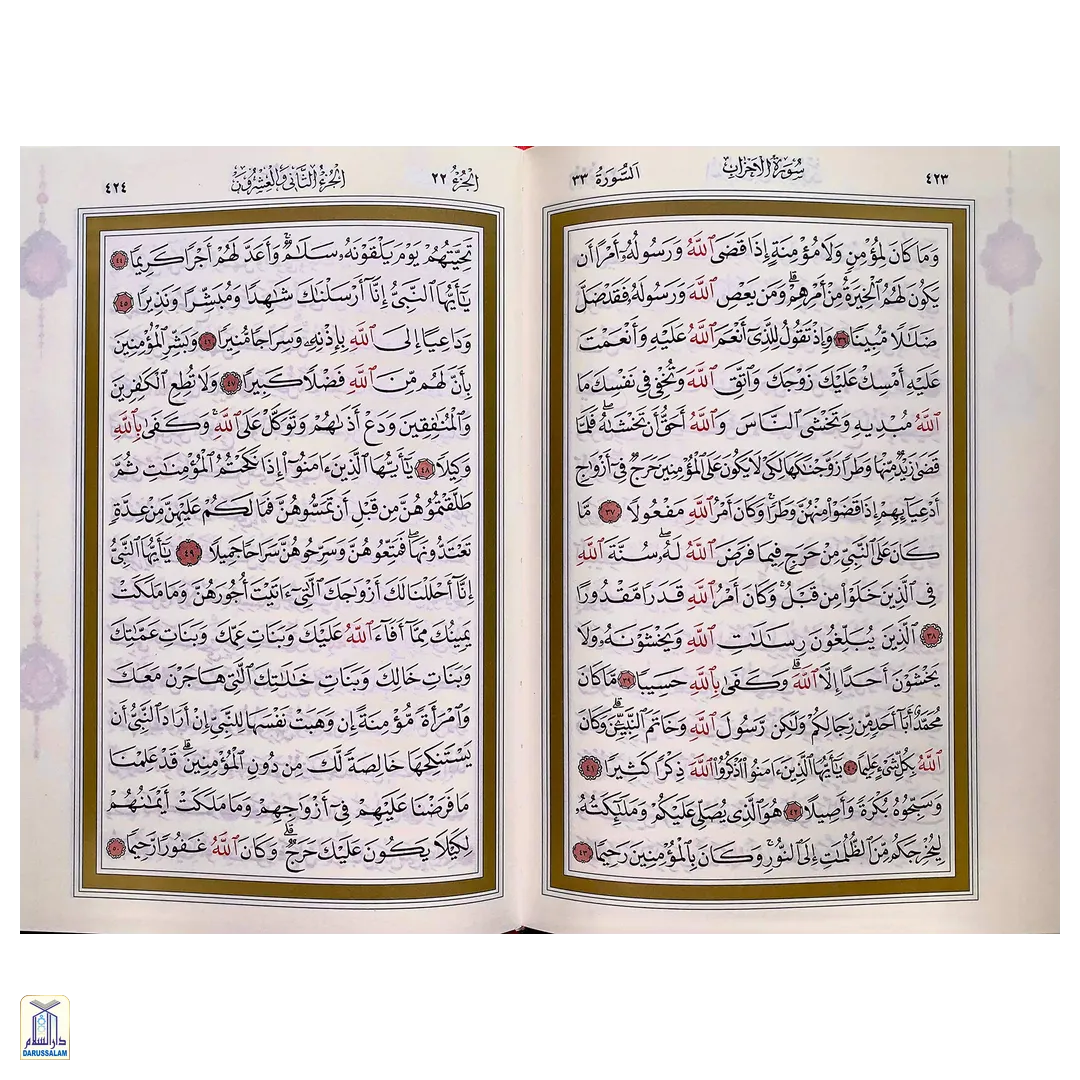 ٤٢٣ سُورَةُ الأَحْزَابِ السُّورَةُ ٣٣
وَمَا كَانَ لِمُؤْمِنٍ وَلَا مُؤْمِنَةٍ إِذَا قَضَى ٱللَّهُ وَرَسُولُهُۥٓ أَمْرًا أَن
يَكُونَ لَهُمُ ٱلْخِيَرَةُ مِنْ أَمْرِهِمْ ۗ وَمَن يَعْصِ ٱللَّهَ وَرَسُولَهُۥ فَقَدْ ضَلَّ
ضَلَٰلًا مُّبِينًا ٣٦ وَإِذْ تَقُولُ لِلَّذِىٓ أَنْعَمَ ٱللَّهُ عَلَيْهِ وَأَنْعَمْتَ
عَلَيْهِ أَمْسِكْ عَلَيْكَ زَوْجَكَ وَٱتَّقِ ٱللَّهَ وَتُخْفِى فِى نَفْسِكَ مَا
ٱللَّهُ مُبْدِيهِ وَتَخْشَى ٱلنَّاسَ وَٱللَّهُ أَحَقُّ أَن تَخْشَىٰهُ ۖ فَلَمَّا
قَضَىٰ زَيْدٌ مِّنْهَا وَطَرًا زَوَّجْنَٰكَهَا لِكَىْ لَا يَكُونَ عَلَى ٱلْمُؤْمِنِينَ حَرَجٌ فِىٓ أَزْوَٰجِ
أَدْعِيَآئِهِمْ إِذَا قَضَوْا۟ مِنْهُنَّ وَطَرًا ۚ وَكَانَ أَمْرُ ٱللَّهِ مَفْعُولًا ٣٧ مَّا
كَانَ عَلَى ٱلنَّبِىِّ مِنْ حَرَجٍ فِيمَا فَرَضَ ٱللَّهُ لَهُۥ ۖ سُنَّةَ ٱللَّهِ
فِى ٱلَّذِينَ خَلَوْا۟ مِن قَبْلُ ۚ وَكَانَ أَمْرُ ٱللَّهِ قَدَرًا مَّقْدُورًا
٣٨ ٱلَّذِينَ يُبَلِّغُونَ رِسَٰلَٰتِ ٱللَّهِ وَيَخْشَوْنَهُۥ وَلَا
يَخْشَوْنَ أَحَدًا إِلَّا ٱللَّهَ ۗ وَكَفَىٰ بِٱللَّهِ حَسِيبًا ٣٩ مَّا كَانَ
مُحَمَّدٌ أَبَآ أَحَدٍ مِّن رِّجَالِكُمْ وَلَٰكِن رَّسُولَ ٱللَّهِ وَخَاتَمَ ٱلنَّبِيِّـۧنَ ۗ وَكَانَ
ٱللَّهُ بِكُلِّ شَىْءٍ عَلِيمًا ٤٠ يَٰٓأَيُّهَا ٱلَّذِينَ ءَامَنُوا۟ ٱذْكُرُوا۟ ٱللَّهَ ذِكْرًا كَثِيرًا ٤١
وَسَبِّحُوهُ بُكْرَةً وَأَصِيلًا ٤٢ هُوَ ٱلَّذِى يُصَلِّى عَلَيْكُمْ وَمَلَٰٓئِكَتُهُۥ
لِيُخْرِجَكُم مِّنَ ٱلظُّلُمَٰتِ إِلَى ٱلنُّورِ ۚ وَكَانَ بِٱلْمُؤْمِنِينَ رَحِيمًا ٤٣
الجُزْءُ ٢٢ الجُزْءُ الثَّانِى وَالْعِشْرُونَ ٤٢٤
تَحِيَّتُهُمْ يَوْمَ يَلْقَوْنَهُۥ سَلَٰمٌ ۚ وَأَعَدَّ لَهُمْ أَجْرًا كَرِيمًا ٤٤
يَٰٓأَيُّهَا ٱلنَّبِىُّ إِنَّآ أَرْسَلْنَٰكَ شَٰهِدًا وَمُبَشِّرًا وَنَذِيرًا ٤٥
وَدَاعِيًا إِلَى ٱللَّهِ بِإِذْنِهِۦ وَسِرَاجًا مُّنِيرًا ٤٦ وَبَشِّرِ ٱلْمُؤْمِنِينَ
بِأَنَّ لَهُم مِّنَ ٱللَّهِ فَضْلًا كَبِيرًا ٤٧ وَلَا تُطِعِ ٱلْكَٰفِرِينَ
وَٱلْمُنَٰفِقِينَ وَدَعْ أَذَىٰهُمْ وَتَوَكَّلْ عَلَى ٱللَّهِ ۚ وَكَفَىٰ بِٱللَّهِ
وَكِيلًا ٤٨ يَٰٓأَيُّهَا ٱلَّذِينَ ءَامَنُوٓا۟ إِذَا نَكَحْتُمُ ٱلْمُؤْمِنَٰتِ ثُمَّ
طَلَّقْتُمُوهُنَّ مِن قَبْلِ أَن تَمَسُّوهُنَّ فَمَا لَكُمْ عَلَيْهِنَّ مِنْ عِدَّةٍ
تَعْتَدُّونَهَا ۖ فَمَتِّعُوهُنَّ وَسَرِّحُوهُنَّ سَرَاحًا جَمِيلًا ٤٩ يَٰٓأَيُّهَا ٱلنَّبِىُّ
إِنَّآ أَحْلَلْنَا لَكَ أَزْوَٰجَكَ ٱلَّٰتِىٓ ءَاتَيْتَ أُجُورَهُنَّ وَمَا مَلَكَتْ
يَمِينُكَ مِمَّآ أَفَآءَ ٱللَّهُ عَلَيْكَ وَبَنَاتِ عَمِّكَ وَبَنَاتِ عَمَّٰتِكَ
وَبَنَاتِ خَالِكَ وَبَنَاتِ خَٰلَٰتِكَ ٱلَّٰتِى هَاجَرْنَ مَعَكَ
وَٱمْرَأَةً مُّؤْمِنَةً إِن وَهَبَتْ نَفْسَهَا لِلنَّبِىِّ إِنْ أَرَادَ ٱلنَّبِىُّ أَن
يَسْتَنكِحَهَا خَالِصَةً لَّكَ مِن دُونِ ٱلْمُؤْمِنِينَ ۗ قَدْ عَلِمْنَا
مَا فَرَضْنَا عَلَيْهِمْ فِىٓ أَزْوَٰجِهِمْ وَمَا مَلَكَتْ أَيْمَٰنُهُمْ
لِكَيْلَا يَكُونَ عَلَيْكَ حَرَجٌ ۗ وَكَانَ ٱللَّهُ غَفُورًا رَّحِيمًا ٥٠
دار السلام
DARUSSALAM